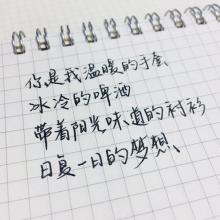 你是我温暖的手套
冰冷的啤酒
带着阳光味道的衬衫
日复一日的梦想、